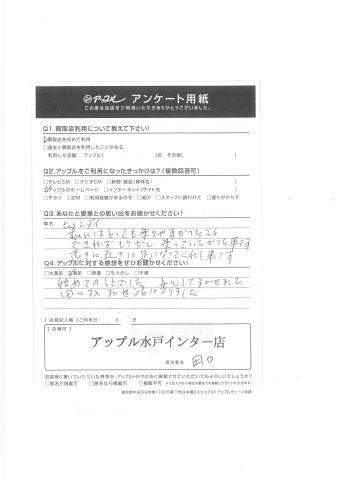 アップル アンケート用紙
この度は当店をご利用いただきありがとうございました。
Q1.買取店利用について教えて下さい!
買取店を初めて利用
□過去に買取店を利用したことがある
利用した店舗: アップル( )店 その他( )
Q2.アップルをご利用になったきっかけは?(複数回答可)
□テレビCM □ラジオCM □新聞・雑誌(媒体名 )
アップルのホームページ □インターネット(サイト名 )
□チラシ □DM □利用経験があるので □紹介 □スタッフに誘われて □通りがかりで
Q3.あなたと愛車との思い出をお聞かせください!
車名: ヒュンダイ
私にはとっても乗りやすかったこと
できればもう少し乗っていたかった車です
Q4.アップルに対する感想をぜひお聞かせください!
□大満足 満足 □普通 □もう少し □不満
初めてのことでした 安心してまかせました
田口さんお世話になりました
【店舗記入欄】ご利用日:
【店舗印】
アップル水戸インター店
担当者名 田口
お客様に書いていただいた感想を、アップルHPや広告に掲載させていただいてもよろしいでしょうか?
□実名で掲載可 □匿名なら掲載可 □掲載不可